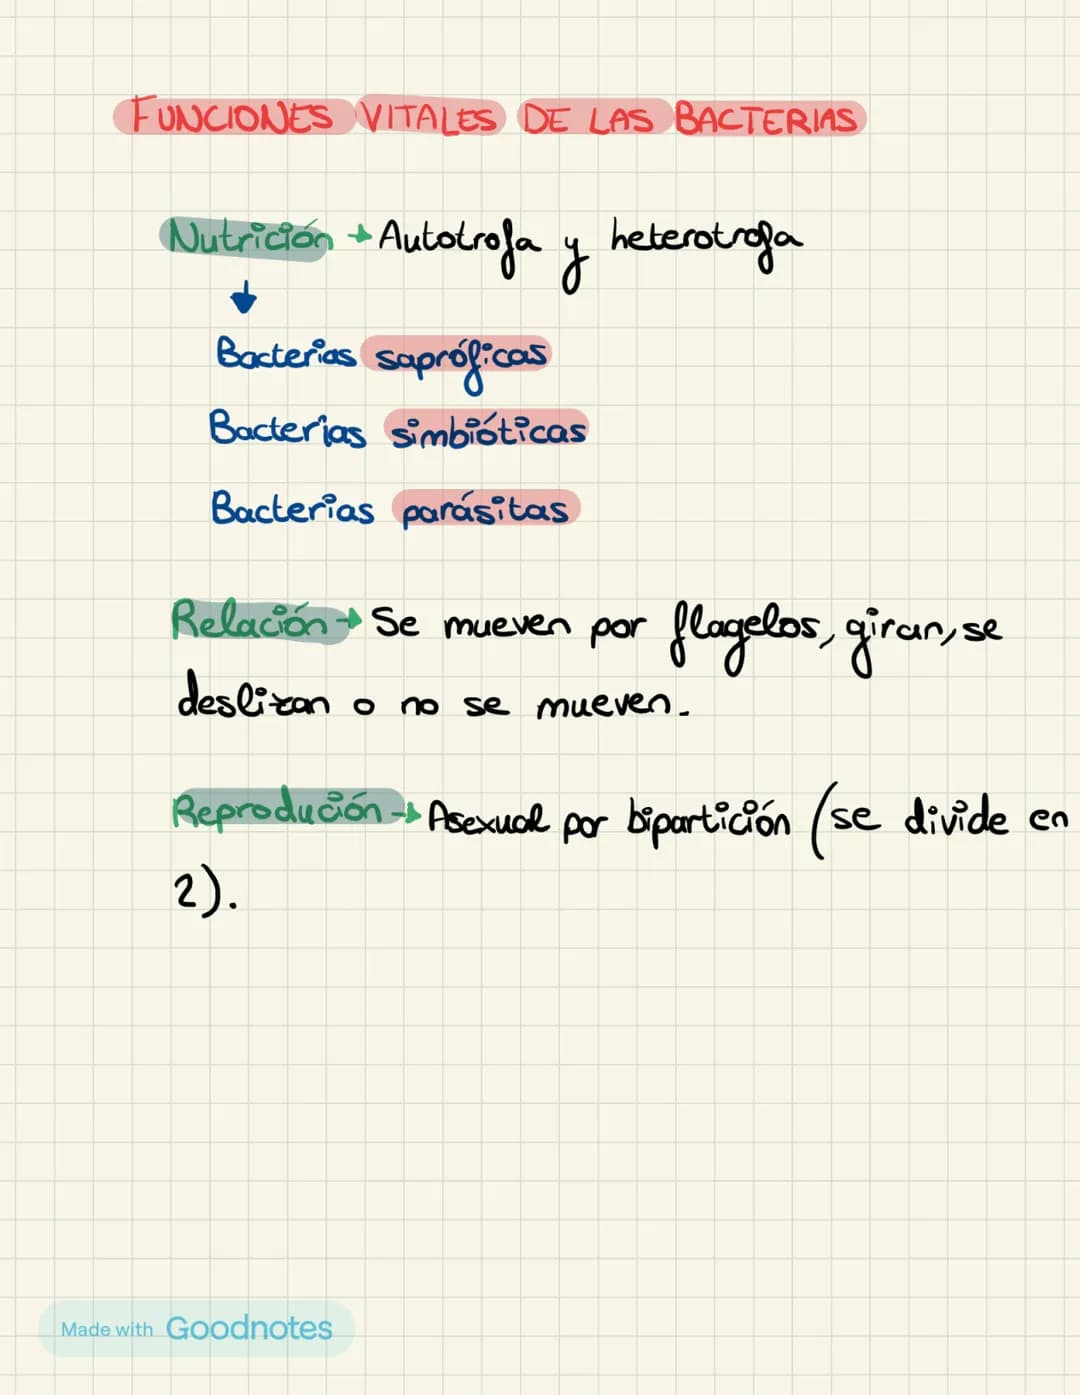 FUNCIONES VITALES DE LAS BACTERIAS
Nutrición → Autotrofa y heterotrofa
Bacterias sapróficas
Bacterias simbióticas
Bacterias parásitas
Relación → Se mueven por flagelos, giran, se
deslizan o no se mueven.
Reprodución → Asexual por bipartición (se divide en
2).
Made with Goodnotes